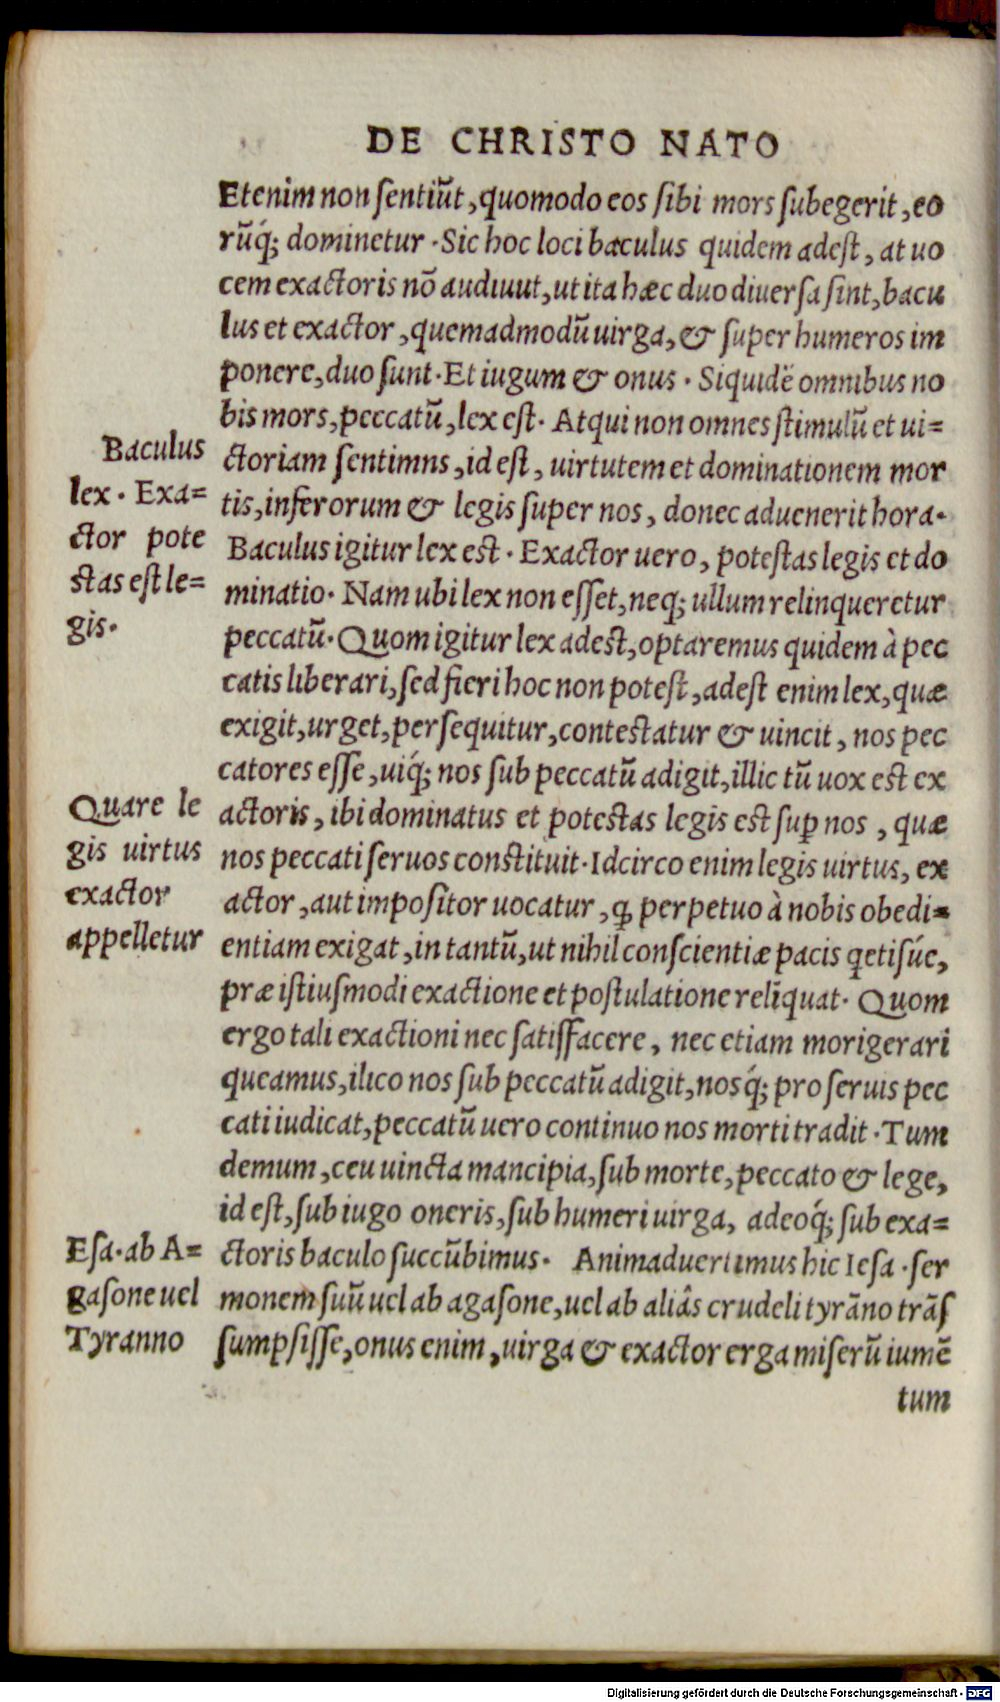 DE CHRISTO NATO
Etenim non ſentiūt, quomodo eos ſibi mors ſubegerit, eo
rūq́; dominetur. Sic hoc loci baculus quidem adeſt, at uo
cem exactoris nō audiuut, ut ita hæc duo diuerſa ſint, bacu
lus et exactor, quemadmodū uirga, & ſuper humeros im
ponere, duo ſunt. Et iugum & onus. Siquidē omnibus no
bis mors, peccatū, lex eſt. Atqui non omnes ſtimulū et ui=
ctoriam ſentimns, id eſt, uirtutem et dominationem mor
tis, inferorum & legis ſuper nos, donec aduenerit hora.
Baculus igitur lex est. Exactor uero, poteſtas legis et do
minatio. Nam ubi lex non eſſet, neq; ullum relinqueretur
peccatū. Quom igitur lex adest, optaremus quidem à pec
catis liberari, ſed fieri hoc non poteſt, adeſt enim lex, quæ
exigit, urget, perſequitur, contestatur & uincit, nos pec
catores eſſe, uiq́; nos ſub peccatū adigit, illic tū uox est ex
actoris, ibi dominatus et potestas legis est suꝑ nos, quæ
nos peccati ſeruos constituit. Idcirco enim legis uirtus, ex
actor, aut impoſitor uocatur, ꝙ perpetuo à nobis obedi=
entiam exigat, in tantū, ut nihil conſcientiæ pacis qetiſúe,
præ iſtiuſmodi exactione et poſtulatione relīquat. Quom
ergo tali exactioni nec ſatiſfacere, nec etiam morigerari
queamus, ilico nos ſub peccatū adigit, nosq́; pro ſeruis pec
cati iudicat, peccatū uero continuo nos morti tradit. Tum
demum, ceu uincta mancipia, ſub morte, peccato & lege,
id eſt, ſub iugo oneris, ſub humeri uirga, adeoq́; ſub exa=
ctoris baculo ſuccūbimus. Animaduertimus hic Ieſa. ſer
monem ſuū uel ab agaſone, uel ab aliâs crudeli tyrāno trāſ
ſumpſiſſe, onus enim, uirga & exactor erga miſerū iumē
tum
Baculus
lex. Exa=
ctor pote
stas eſt le=
gis.
Quare le
gis uirtus
exactor
appelletur
Eſa. ab A=
gaſone uel
Tyranno
Digitalisierung gefördert durch die Deutsche Forschungsgemeinschaft - DFG